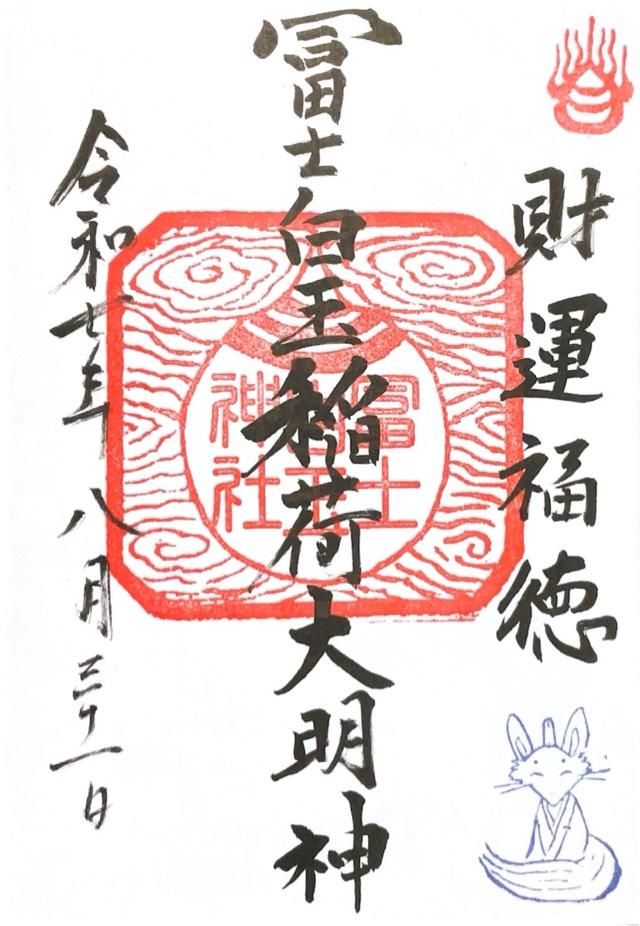 財運福徳
冨士白玉稲荷大明神
冨士
神社
令和七年八月三十一日